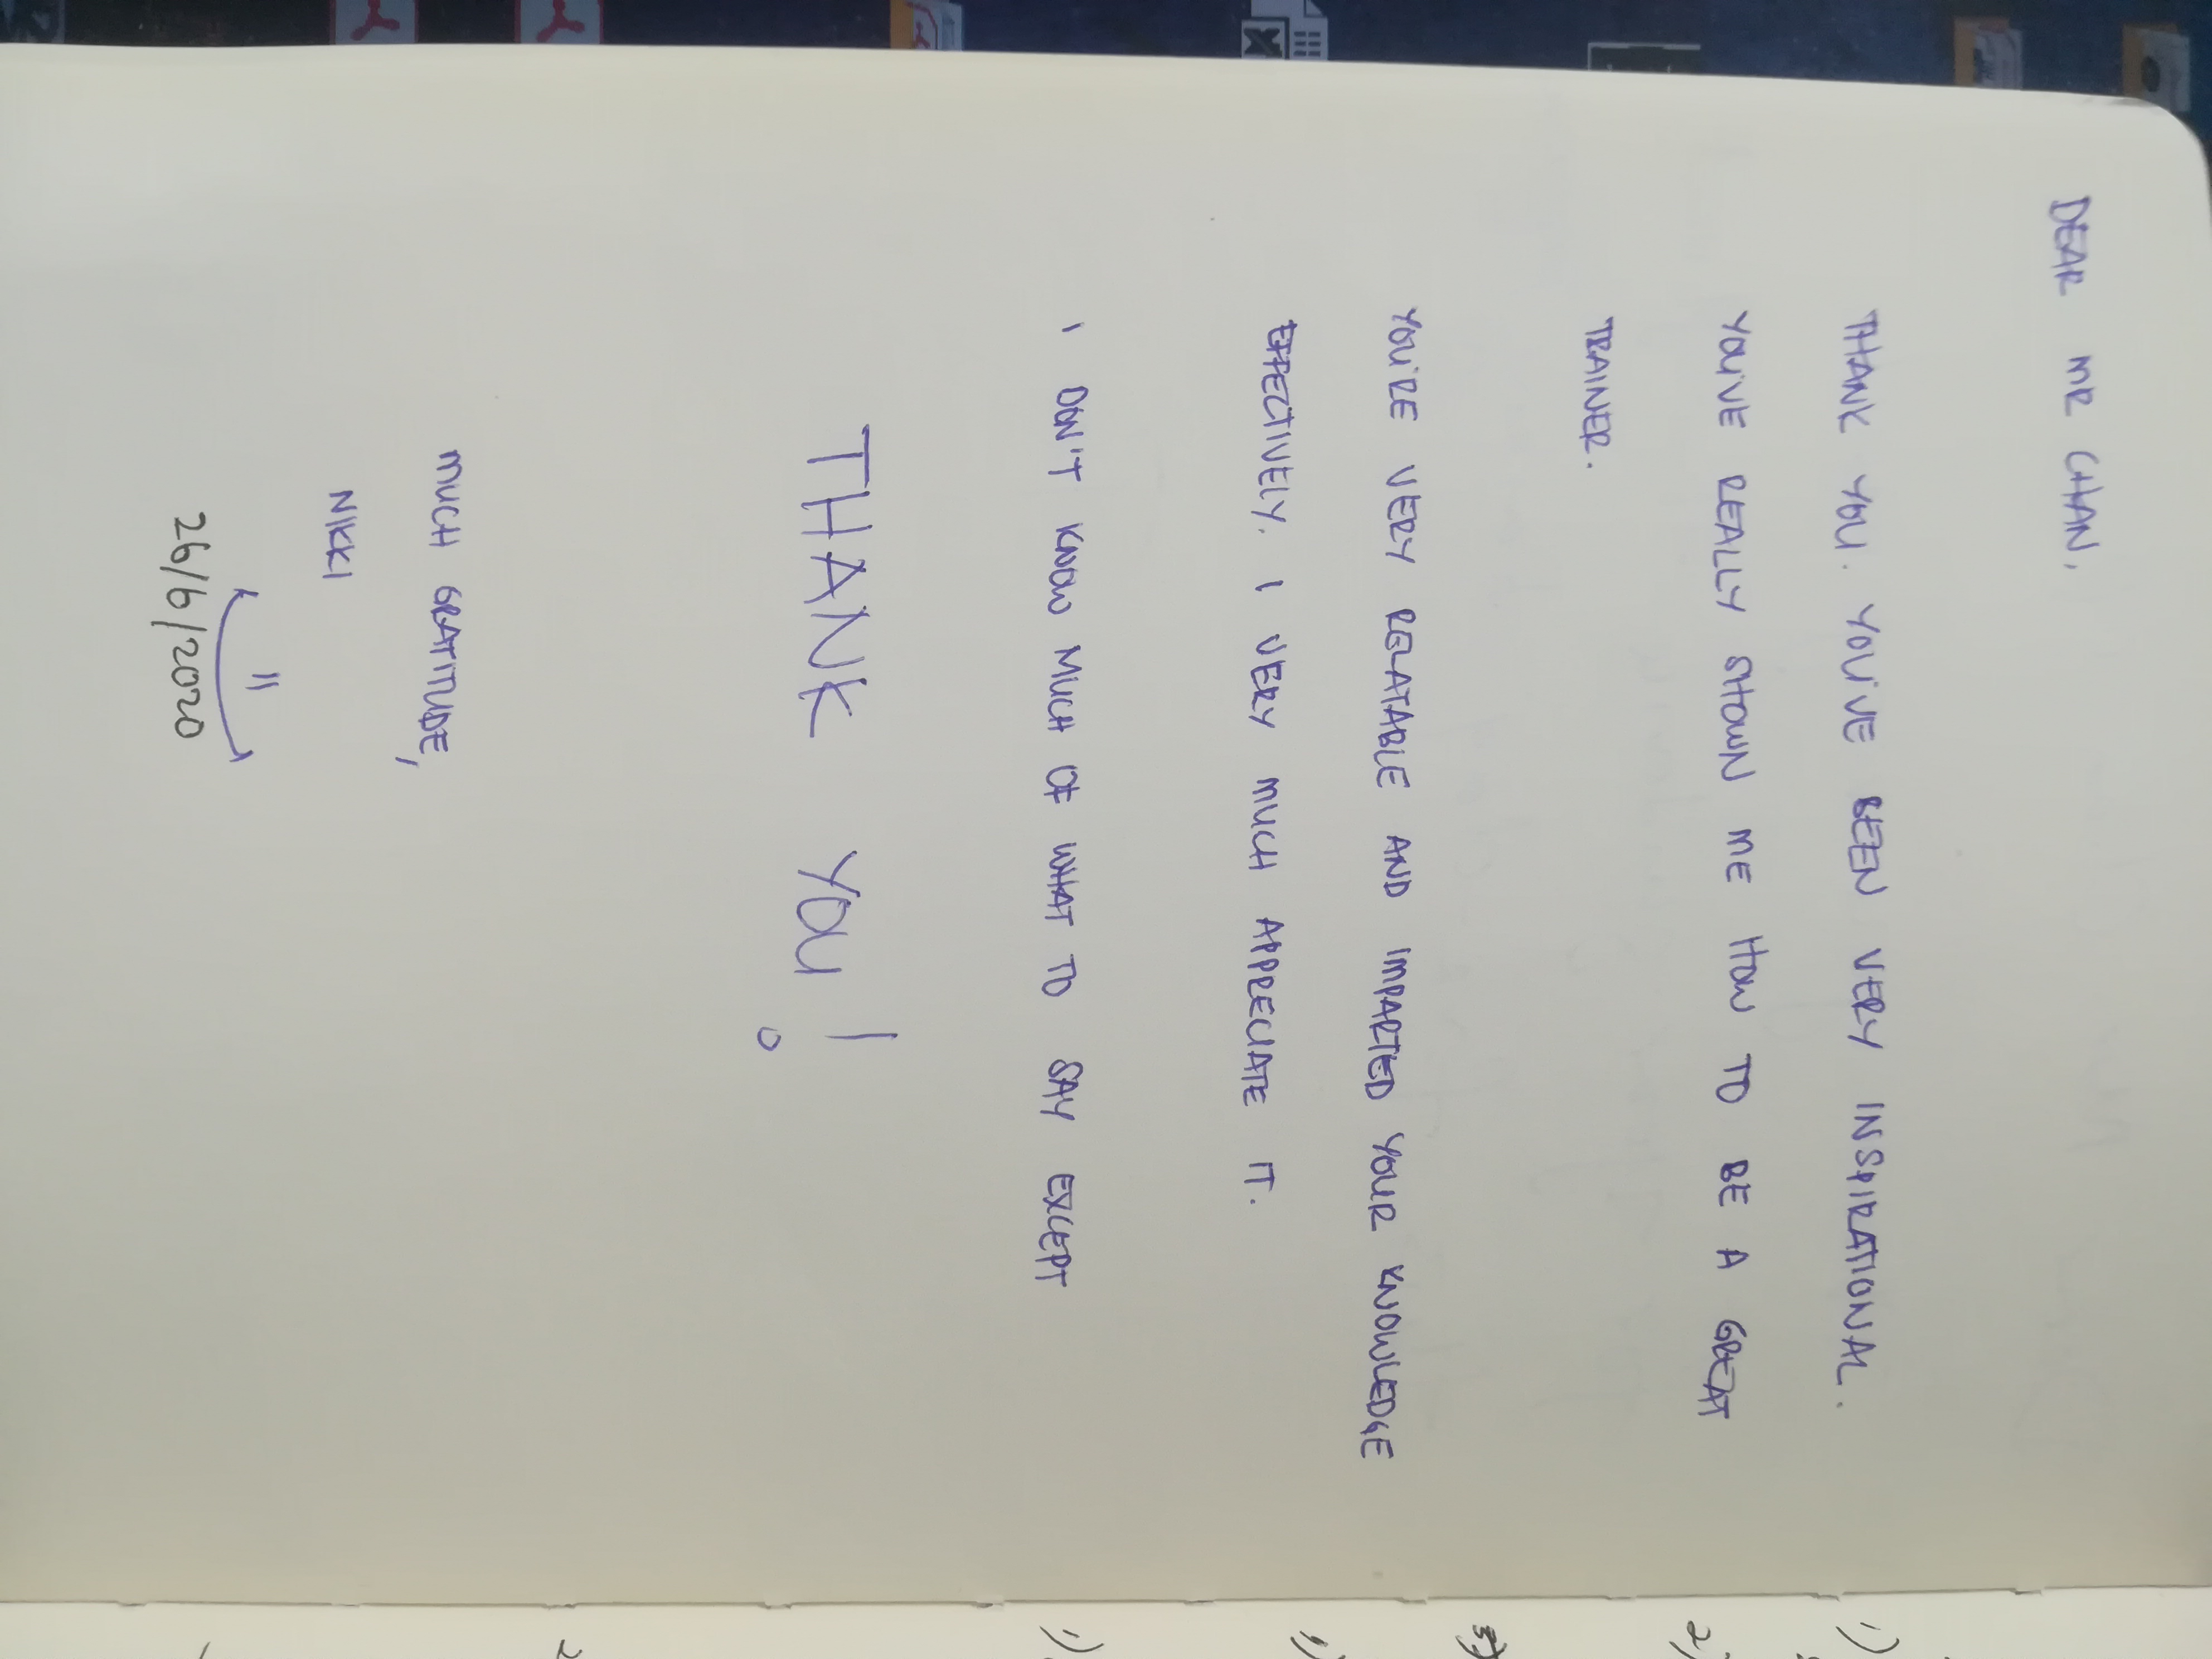 DEAR MR CHAN,
THANK YOU. YOU'VE BEEN VERY INSPIRATIONAL.
YOU'VE REALLY SHOWN ME HOW TO BE A GREAT
TRAINER.
YOU'RE VERY RELATABLE AND IMPARTED YOUR KNOWLEDGE
EFFECTIVELY. I VERY MUCH APPRECIATE IT.
I DON'T KNOW MUCH OF WHAT TO SAY EXCEPT
THANK YOU!
MUCH GRATITUDE,
NIKKI
26/6/2020
1)
2)
3)
1)
1)
2